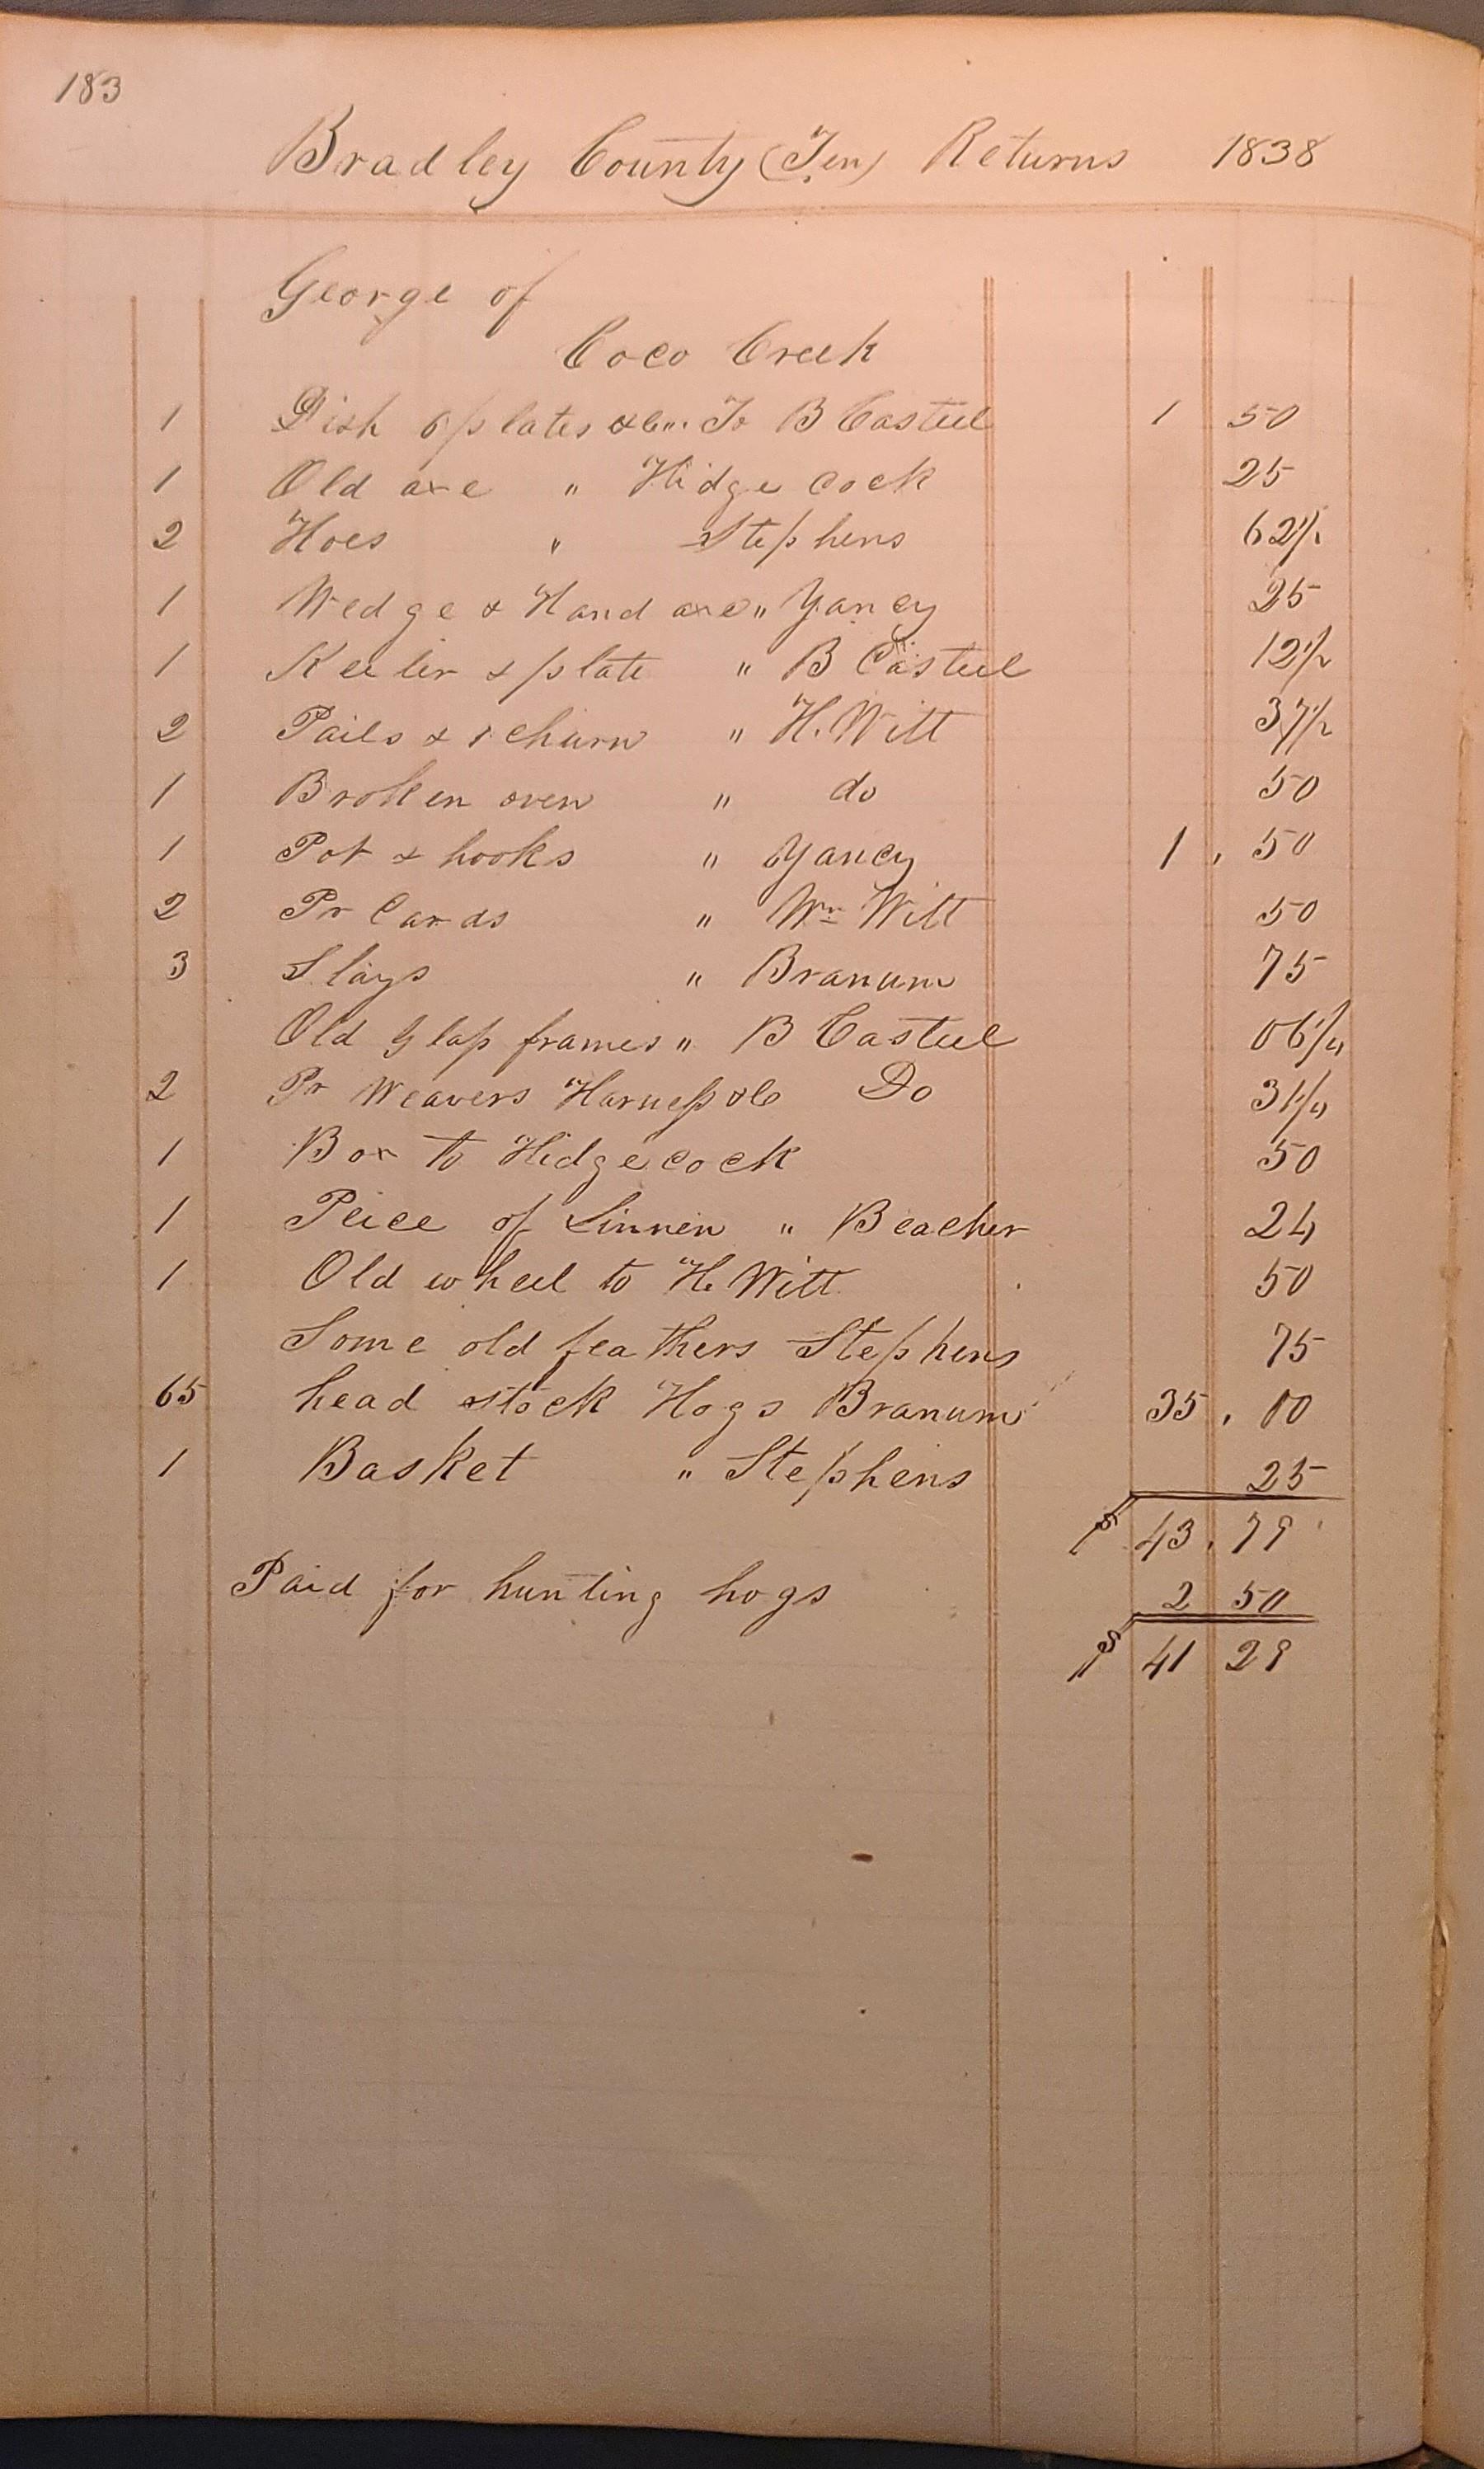 183
Bradley County (Ten) Returns 1838
George of
Coco Creek
1 Dish 6 plates &c " To B Casteel 1 50
1 Old axe " Hidge cock 25
2 Hoes " Stephens 62½
1 Wedge & Hand axe " Yancy 25
1 Keeler & plate " B Casteel 12½
2 Pails & 1 churn " H. Witt 37½
1 Broken oven " do 50
1 Pot & hooks " Yancy 1 . 50
2 Pr Cards " Wm Witt 50
3 Slays " Branum 75
Old Glass frames " B Casteel 06¼
2 Pr Weavers Harness &c Do 31¼
1 Box to Hidgecock 50
1 Peice of Linnen " Beacher 24
1 Old wheel to H. Witt 50
Some old feathers Stephens 75
65 head stock Hogs Branum 35 . 00
1 Basket " Stephens 25
$ 43 . 79
Paid for hunting hogs 2 50
$ 41 29